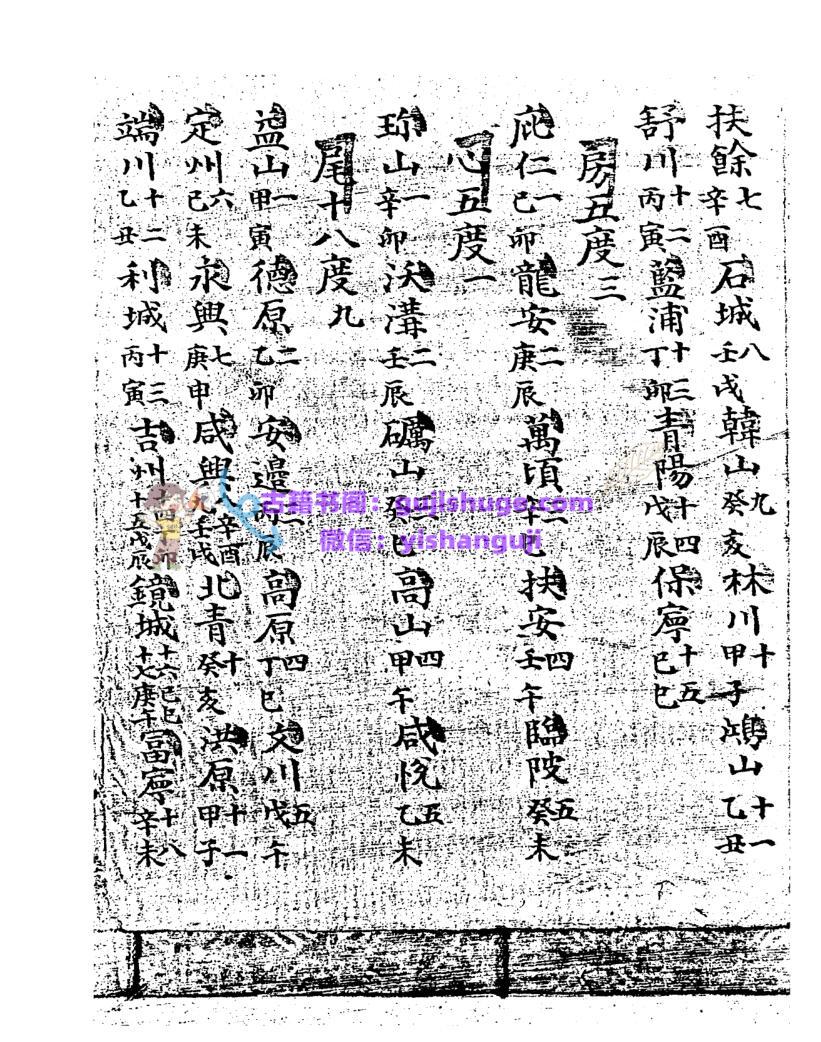 扶餘七辛酉石城八壬戌韓山九癸亥林川十甲子鴻山十一乙丑
舒川十二丙寅藍浦十三丁卯青陽十四戊辰保寧十五己巳
房五度三
庇仁一己卯龍安二庚辰萬頃三辛巳扶安四壬午臨陂五癸未
心五度一
珎山一辛卯沃溝二壬辰礪山三癸巳高山四甲午咸悅五乙未
尾十八度九
益山一甲寅德原二乙卯安邊三丙辰高原四丁巳文川五戊午
定州六己未永興七庚申咸興辛酉壬戌北青十癸亥洪原十一甲子
端川十二乙丑利城十三丙寅吉州十四卯十五戊辰鏡城十六己巳十七庚午富寧十八辛未
古籍书阁：gujishuge.com
微信：yishanguji